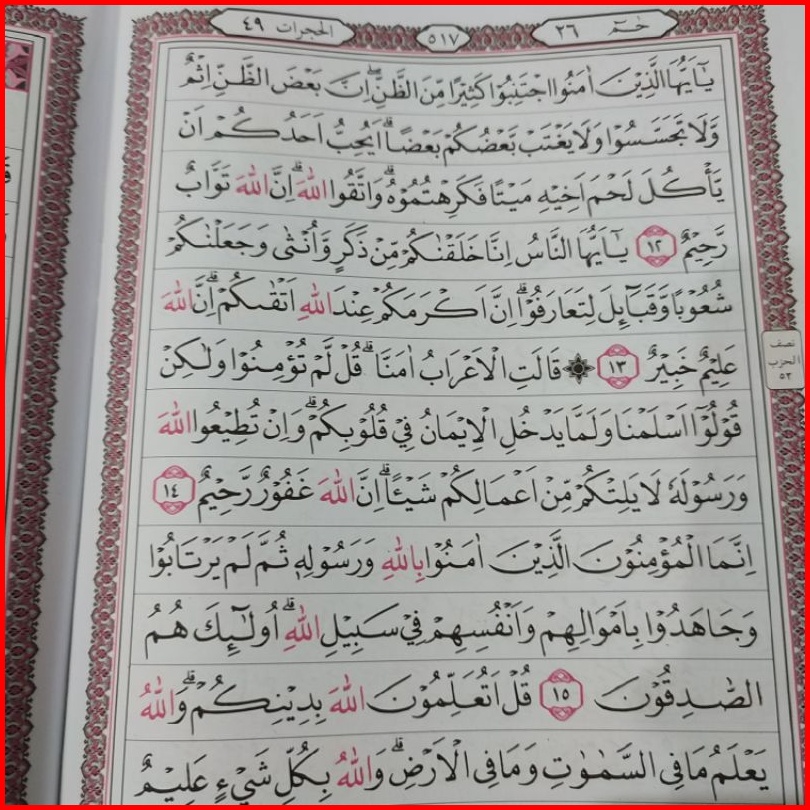 الحجرات ٤٩
٥١٧
حٰمٓ ٢٦
يٰٓاَيُّهَا الَّذِيْنَ اٰمَنُوا اجْتَنِبُوْا كَثِيْرًا مِّنَ الظَّنِّۖ اِنَّ بَعْضَ الظَّنِّ اِثْمٌ
وَّلَا تَجَسَّسُوْا وَلَا يَغْتَبْ بَّعْضُكُمْ بَعْضًاۗ اَيُحِبُّ اَحَدُكُمْ اَنْ
يَّأْكُلَ لَحْمَ اَخِيْهِ مَيْتًا فَكَرِهْتُمُوْهُۗ وَاتَّقُوا اللّٰهَۗ اِنَّ اللّٰهَ تَوَّابٌ
رَّحِيْمٌ ١٢ يٰٓاَيُّهَا النَّاسُ اِنَّا خَلَقْنٰكُمْ مِّنْ ذَكَرٍ وَّاُنْثٰى وَجَعَلْنٰكُمْ
شُعُوْبًا وَّقَبَاۤىِٕلَ لِتَعَارَفُوْاۗ اِنَّ اَكْرَمَكُمْ عِنْدَ اللّٰهِ اَتْقٰىكُمْۗ اِنَّ اللّٰهَ
عَلِيْمٌ خَبِيْرٌ ١٣ ۞ قَالَتِ الْاَعْرَابُ اٰمَنَّاۗ قُلْ لَّمْ تُؤْمِنُوْا وَلٰكِنْ
قُوْلُوْٓا اَسْلَمْنَا وَلَمَّا يَدْخُلِ الْاِيْمَانُ فِيْ قُلُوْبِكُمْۗ وَاِنْ تُطِيْعُوا اللّٰهَ
وَرَسُوْلَهٗ لَا يَلِتْكُمْ مِّنْ اَعْمَالِكُمْ شَيْـًٔاۗ اِنَّ اللّٰهَ غَفُوْرٌ رَّحِيْمٌ ١٤
اِنَّمَا الْمُؤْمِنُوْنَ الَّذِيْنَ اٰمَنُوْا بِاللّٰهِ وَرَسُوْلِهٖ ثُمَّ لَمْ يَرْتَابُوْا
وَجَاهَدُوْا بِاَمْوَالِهِمْ وَاَنْفُسِهِمْ فِيْ سَبِيْلِ اللّٰهِۗ اُولٰۤىِٕكَ هُمُ
الصّٰدِقُوْنَ ١٥ قُلْ اَتُعَلِّمُوْنَ اللّٰهَ بِدِيْنِكُمْۗ وَاللّٰهُ
يَعْلَمُ مَا فِى السَّمٰوٰتِ وَمَا فِى الْاَرْضِۗ وَاللّٰهُ بِكُلِّ شَيْءٍ عَلِيْمٌ
نصف
الحزب
٥٢